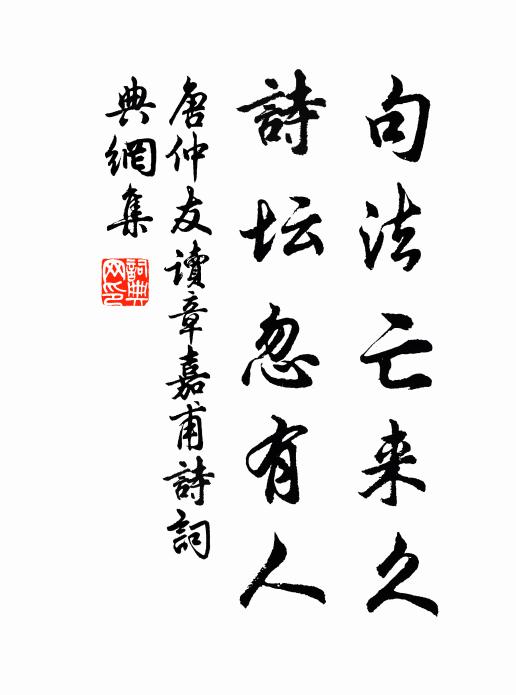 句法亡来久
詩坛忽有人
唐仲友讀章嘉甫詩詞
典網集
詞典
网印